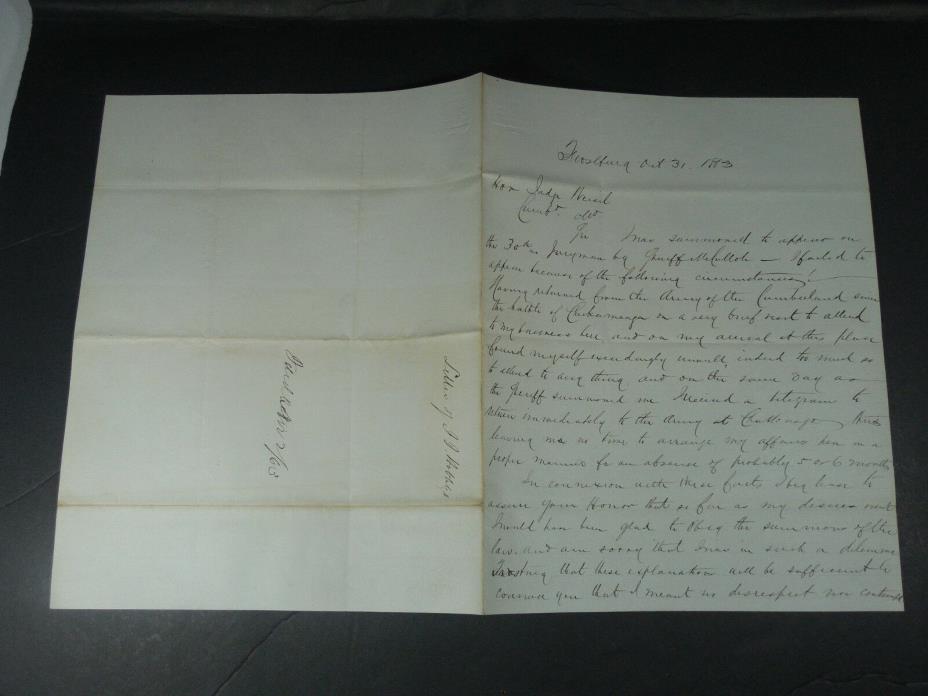 Frostburg Oct 31. 1863
Hon Judge
Cumbd. Md.
Sir I was summoned to appear on
the 30th as Juryman by Sheriff McCulloh — I failed to
appear because of the following circumstances! —
Having returned from the Army of the Cumberland since
the battle of Chickamauga on a very brief visit to attend
to my business here, and on my arrival at this place
found myself exceedingly unwell, indeed too much so
to attend to any thing and on the same day as
the Sheriff summoned me I recived a telegram to
return immediately to the Army at Chattanooga
leaving me no time to arrange my affairs here in a
proper manner for an absence of probably 5 or 6 months
In connexion with these facts, I beg leave to
assure your Honor that so far as my desires went
I would have been glad to obey the summons of the
law. and am sorry that I was in such a dilemma
Trusting that these explanation will be sufficient to
convince you that I meant no disrespect nor contempt
Letter of